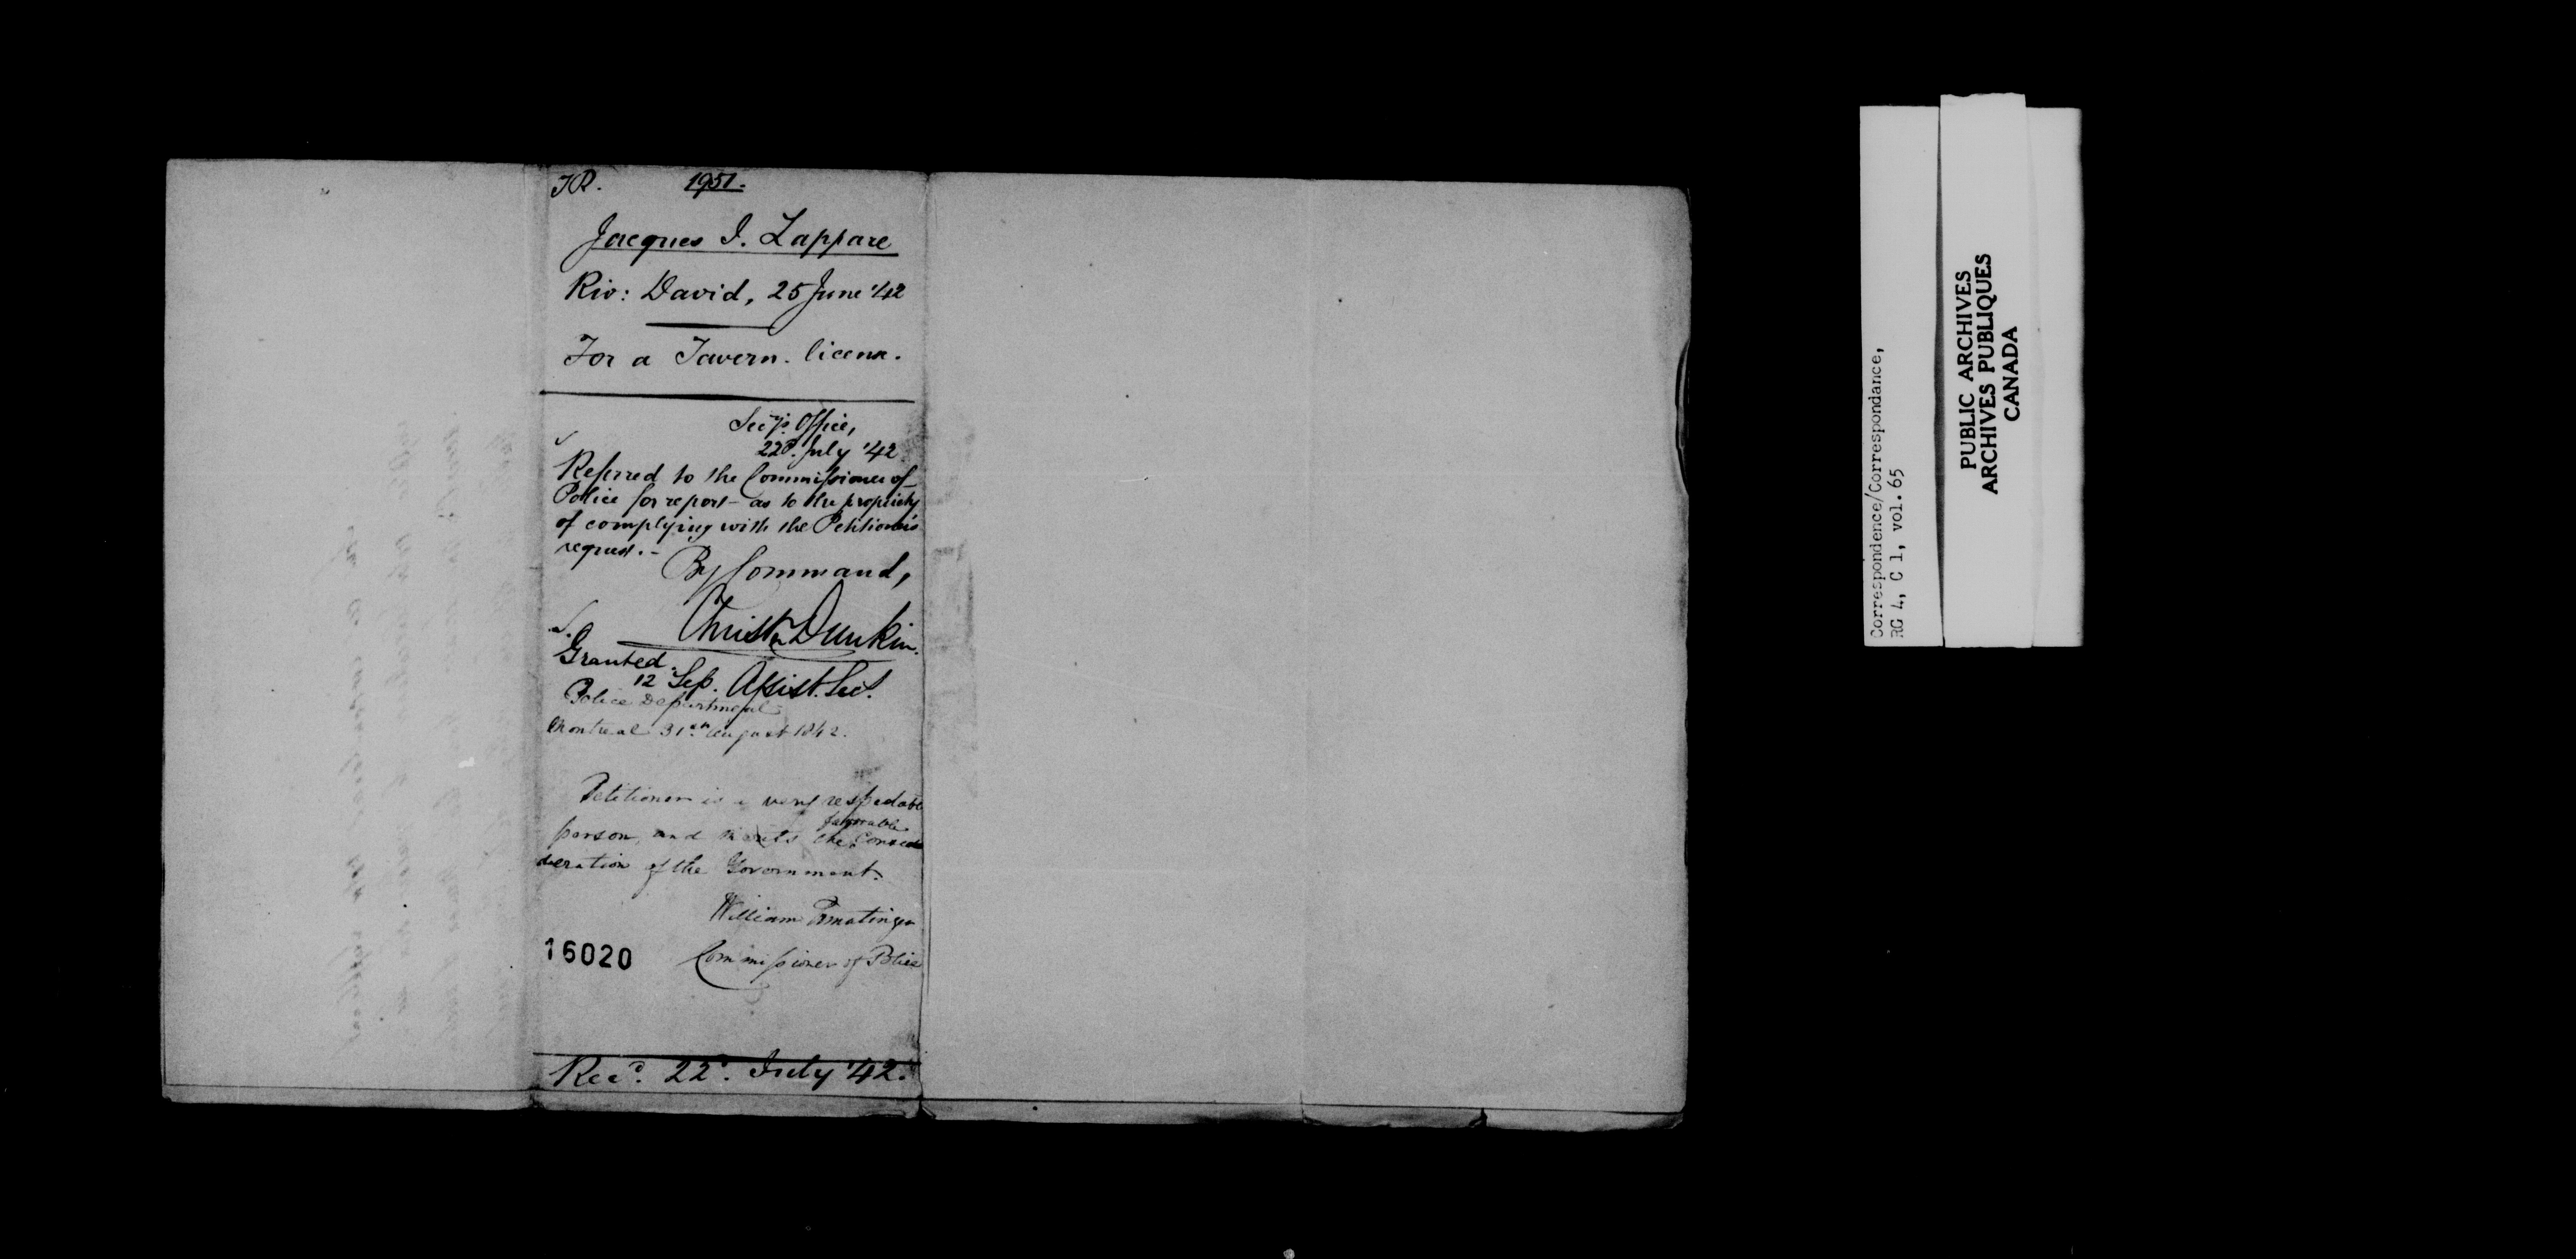 TR. 1951.
Jacques I. Lappare
Riv: David, 25 June '42
For a Tavern-license.
Sec'y's Office,
22d. July '42
Referred to the Commissioner of
Police for report - as to the propriety
of complying with the Petitioner's
request. -
By Command,
Christr Dunkin.
Assist. Sec'y.
Granted.
12 Sep.
Police Department
Montreal 31st August 1842.
Petitioner is a very respectable
person, and merits the favorable Consi
deration of the Government.
William Ermatinger
Commissioner of Police
16020
Recd. 22d. July '42.
Correspondence/Correspondance,
RG 4, C 1, vol. 65
PUBLIC ARCHIVES
ARCHIVES PUBLIQUES
CANADA